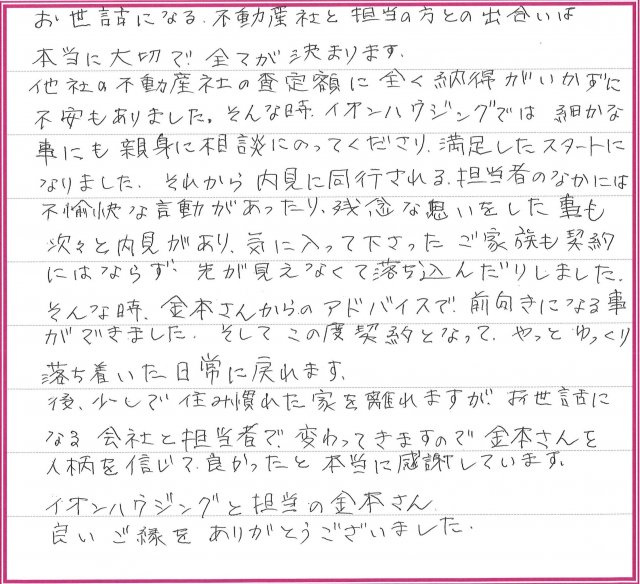 お世話になる、不動産社と担当の方との出会いは
本当に大切で全てが決まります。
他社の不動産社の査定額に全く納得がいかずに
不安もありました。そんな時、イオンハウジングでは細かな
事にも親身に相談にのってくださり、満足したスタートに
なりました。それから内見に同行される、担当者のなかには
不愉快な言動があったり、残念な思いをした事も
次々と内見があり、気に入って下さったご家族も契約
にはならず、先が見えなくて落ち込んだりしました。
そんな時、金本さんからのアドバイスで、前向きになる事
ができました。そしてこの度契約となって、やっとゆっくり
落ち着いた日常に戻れます。
後、少しで住み慣れた家を離れますがお世話に
なる会社と担当者で、変わってきますので金本さんを
人柄を信じて、良かったと本当に感謝しています。
イオンハウジングと担当の金本さん
良いご縁をありがとうございました。